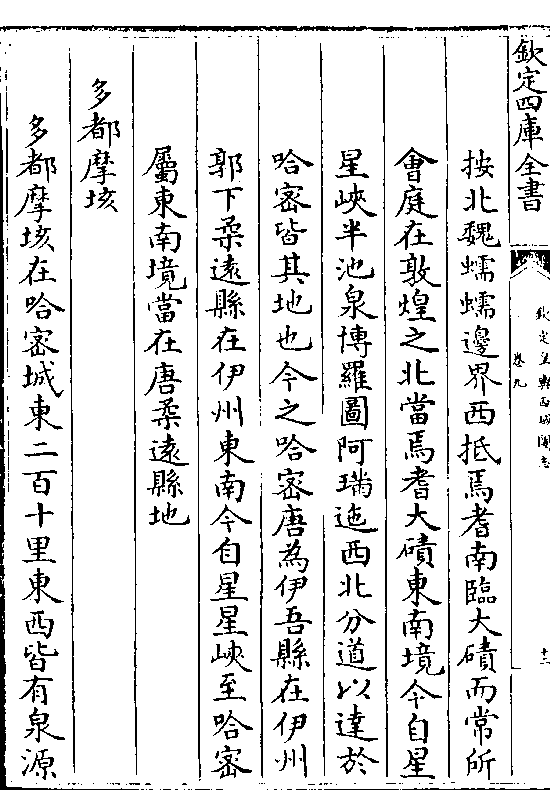 欽定四庫全書
欽定皇輿西域圖志
卷九
十二
按北魏蠕蠕邊界西抵焉耆南臨大磧而常所
會庭在敦煌之北當焉耆大磧東南境今自星
星峽半池泉博羅圖阿瑞迤西北分道以達於
哈密皆其地也今之哈密唐為伊吾縣在伊州
郭下柔遠縣在伊州東南今自星星峽至哈密
屬東南境當在唐柔遠縣地
多都摩垓
多都摩垓在哈密城東二百十里東西皆有泉源